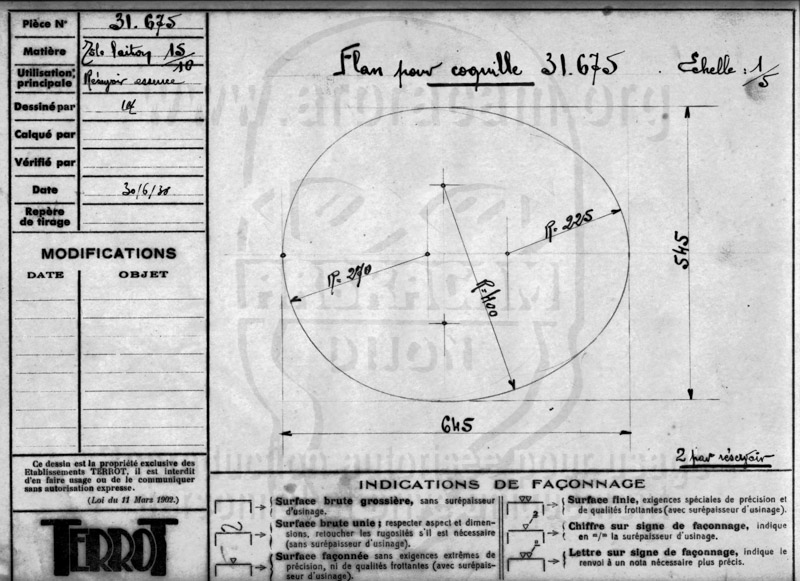 Pièce Nº 31.675
Matière Tôle laiton 15/10
Utilisation principale Réservoir essence
Dessiné par
Calqué par
Vérifié par
Date 30/6/30
Repère de tirage
MODIFICATIONS
DATE OBJET
Ce dessin est la propriété exclusive des
Etablissements TERROT, il est interdit
d'en faire usage ou de le communiquer
sans autorisation expresse.
(Loi du 11 Mars 1902.)
TERROT
Flan pour coquille 31.675
Echelle : 1/5
R=225
R=270
R=400
545
645
2 par réservoir
INDICATIONS DE FAÇONNAGE
Surface brute grossière, sans surépaisseur
d'usinage.
Surface brute unie; respecter aspect et dimen-
sions, retoucher les rugosités s'il est nécessaire
(sans surépaisseur d'usinage).
Surface façonnée sans exigences extrêmes de
précision, ni de qualités frottantes (avec surépais-
seur d'usinage).
Surface finie, exigences spéciales de précision et
de qualités frottantes (avec surépaisseur d'usinage).
2
Chiffre sur signe de façonnage, indique
en m/m la surépaisseur d'usinage.
Lettre sur signe de façonnage, indique le
renvoi à un nota nécessaire plus précis.